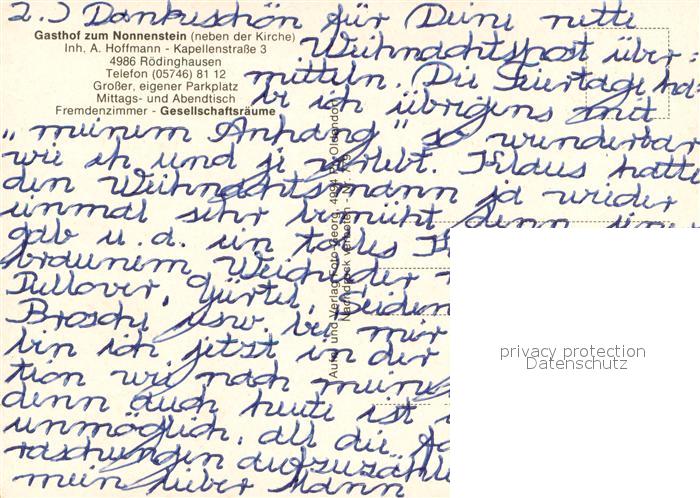 2.) Dankeschön für Deine nette
Gasthof zum Nonnenstein (neben der Kirche)
Inh. A. Hoffmann - Kapellenstraße 3
4986 Rödinghausen
Telefon (05746) 81 12
Großer, eigener Parkplatz
Mittags- und Abendtisch
Fremdenzimmer - Gesellschaftsräume
Weihnachtspost über=
mitteln. Die Feiertage ha-
be ich übrigens mit
„meinem Anhang" so wunderbar
wie eh und je verlebt. Klaus hatte
den Weihnachtsmann ja wieder
einmal sehr bemüht denn
gab u. a. ein tolles
braunem Weichleder
Pullover, Gürtel, Seiden
Brosche usw. bei mir
bin ich jetzt in der
tion wie nach meine
denn auch heute ist
unmöglich, all die
raschungen aufzuzähle
mein lieber Mann
Aufn. und Verlag Foto-Georg, 4994 Pr. Oldendorf
Nachdruck verboten - Nr.
privacy protection
Datenschutz